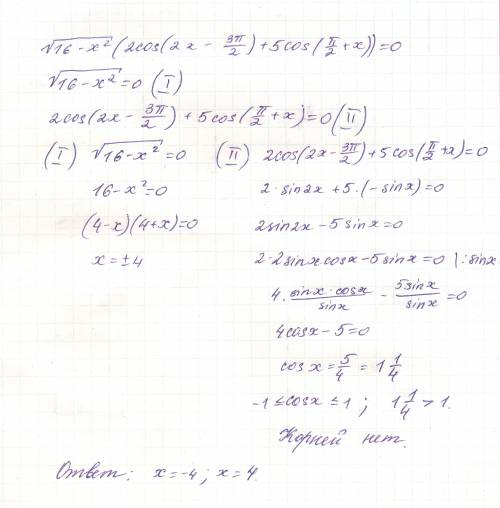 √16-x² (2cos(2x - 3π/2) + 5cos(π/2 + x)) = 0
√16-x² = 0 (I)
2cos(2x - 3π/2) + 5cos(π/2 + x) = 0 (II)
(I) √16-x² = 0 (II) 2cos(2x - 3π/2) + 5cos(π/2 + x) = 0
16-x² = 0 2·sin2x + 5·(-sinx) = 0
(4-x)(4+x) = 0 2sin2x - 5sinx = 0
x = ±4 2·2sinxcosx - 5sinx = 0 | :sinx
4· sinx·cosx/sinx - 5sinx/sinx = 0
4cosx - 5 = 0
cosx = 5/4 = 1 1/4
-1 ≤ cosx ≤ 1 ; 1 1/4 > 1.
Корней нет.
Ответ: x = -4 ; x = 4.